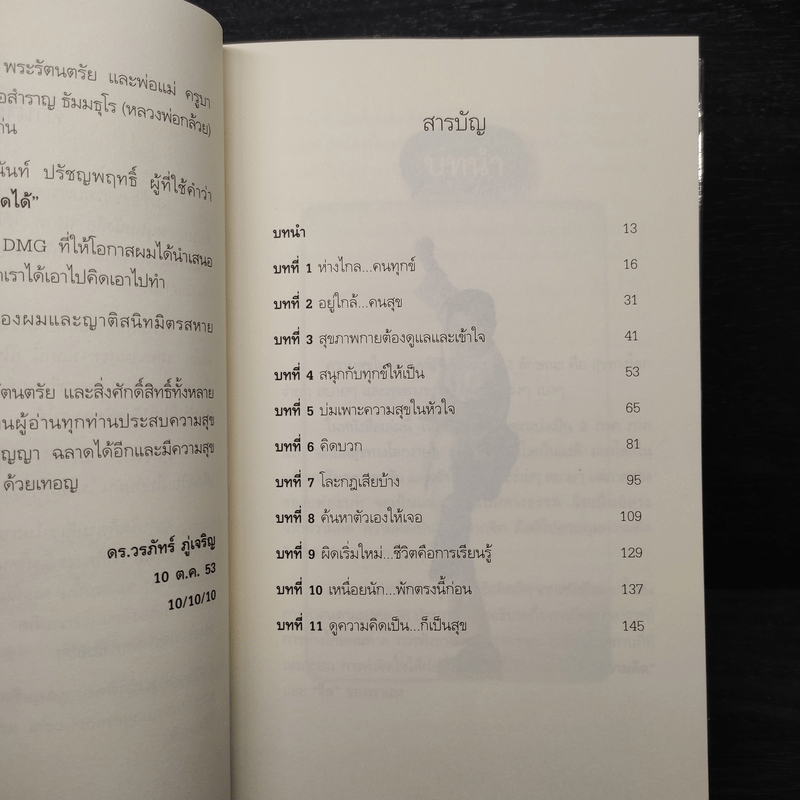 พระรัตนตรัย และพ่อแม่ ครูบา
อสำราญ ธัมมธุโร (หลวงพ่อกล้วย)
ก่น
นันท์ ปรัชญพฤทธิ์ ผู้ที่ใช้คำว่า
ดได้"
DMG ที่ให้โอกาสผมได้นำเสนอ
าเราได้เอาไปคิดเอาไปทำ
องผมและญาติสนิทมิตรสหาย
รัตนตรัย และสิ่งศักดิ์สิทธิ์ทั้งหลาย
านผู้อ่านทุกท่านประสบความสุข
ญญา ฉลาดได้อีกและมีความสุข
ด้วยเทอญ
ดร.วรภัทร์ ภู่เจริญ
10 ต.ค. 53
10/10/10
สารบัญ
บทนำ 13
บทที่ 1 ห่างไกล...คนทุกข์ 16
บทที่ 2 อยู่ใกล้...คนสุข 31
บทที่ 3 สุขภาพกายต้องดูแลและเข้าใจ 41
บทที่ 4 สนุกกับทุกข์ให้เป็น 53
บทที่ 5 บ่มเพาะความสุขในหัวใจ 65
บทที่ 6 คิดบวก 81
บทที่ 7 โละกฎเสียบ้าง 95
บทที่ 8 ค้นหาตัวเองให้เจอ 109
บทที่ 9 ผิดเริ่มใหม่...ชีวิตคือการเรียนรู้ 129
บทที่ 10 เหนื่อยนัก...พักตรงนี้ก่อน 137
บทที่ 11 ดูความคิดเป็น...ก็เป็นสุข 145